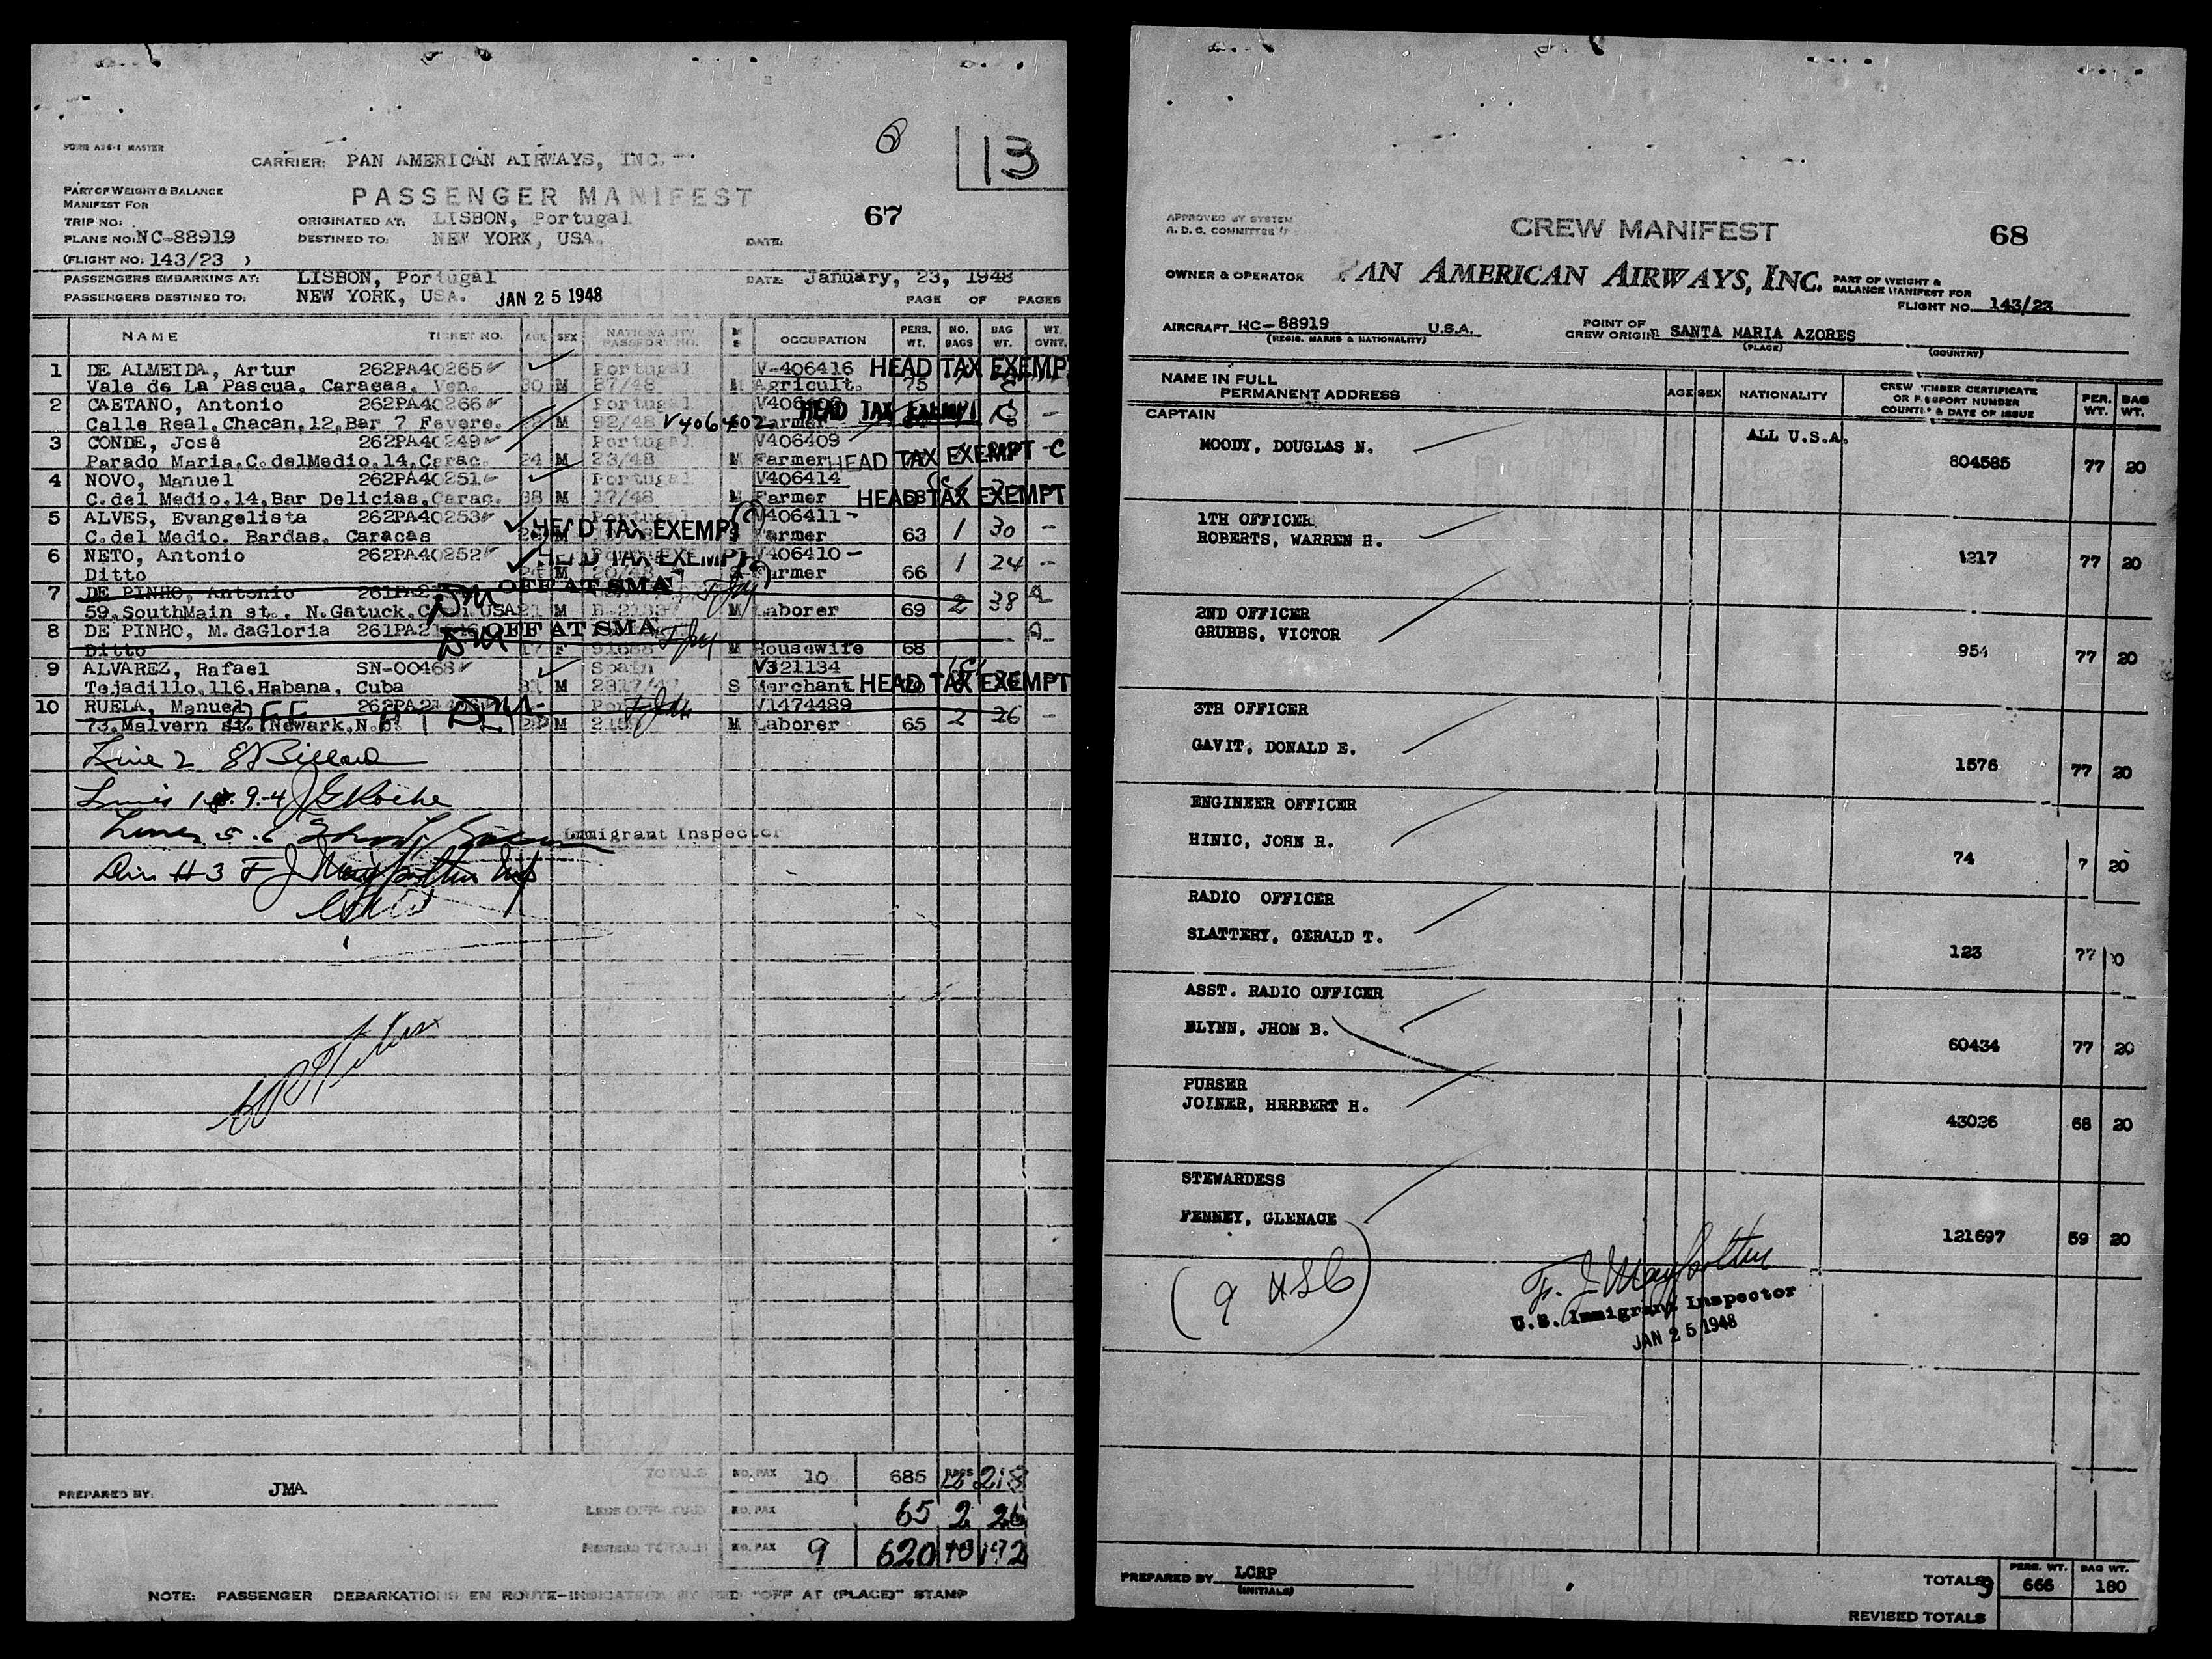 6
13
FORM A26-1 MASTER
CARRIER: PAN AMERICAN AIRWAYS, INC.
PART OF WEIGHT & BALANCE
MANIFEST FOR
PASSENGER MANIFEST
67
TRIP NO:
ORIGINATED AT: LISBON, Portugal
PLANE NO: NC-88919
DESTINED TO: NEW YORK, USA.
DATE:
(FLIGHT NO. 143/23 )
PASSENGERS EMBARKING AT: LISBON, Portugal
DATE: January, 23, 1948
PASSENGERS DESTINED TO: NEW YORK, USA. JAN 25 1948
PAGE OF PAGES
NAME TICKET NO. AGE SEX NATIONALITY PASSPORT NO. M S OCCUPATION PERS. WT. NO. BAGS BAG WT. WT. OVNT.
1 DE ALMEIDA, Artur 262PA40265 Portugal V-406416 HEAD TAX EXEMPT
Vale de La Pascua, Caracas, Ven. 30 M 87/48 M Agricult. 75
2 CAETANO, Antonio 262PA40266 Portugal HEAD TAX EXEMPT
Calle Real, Chacan,12,Bar 7 Fevere. M 92/48 V406402 Farmer
3 CONDE, José 262PA40249 Portugal V406409
Parado Maria,C.delMedio,14,Carac. 24 M 23/48 M Farmer HEAD TAX EXEMPT -C
4 NOVO, Manuel 262PA40251 Portugal V406414
C.del Medio,14,Bar Delicias,Carac. 38 M 17/48 M Farmer HEAD TAX EXEMPT
5 ALVES, Evangelista 262PA40253 HEAD TAX EXEMPT V406411 -
C.del Medio. Bardas, Caracas M Farmer 63 1 30 -
6 NETO, Antonio 262PA40252 HEAD TAX EXEMPT V406410 -
Ditto M 20/48 Farmer 66 1 24 -
7 DE PINHO, Antonio OFF AT SMA
59,SouthMain st., N.Gatuck,C USA 21 M M Laborer 69 2 38
8 DE PINHO, M.daGloria OFF AT SMA
Ditto 17 F M Housewife 68
9 ALVAREZ, Rafael SN-00468 Spain V321134
Tejadillo,116,Habana, Cuba 31 M S Merchant HEAD TAX EXEMPT
10 RUELA, Manuel V1474489
73,Malvern st. Newark,N.J. M M Laborer 65 2 26 -
Line 2
Lines 1 9-4
Lines 5-6 Immigrant Inspector
TOTALS NO. PAX 10 685 BAGS 218
PREPARED BY: JMA
LESS OFF-LOAD NO. PAX 65 2 26
REVISED TOTALS NO. PAX 9 620 10 192
NOTE: PASSENGER DEBARKATIONS EN ROUTE-INDICATED BY RED "OFF AT (PLACE)" STAMP
APPROVED BY SYSTEM
A. D. C. COMMITTEE
CREW MANIFEST
68
OWNER & OPERATOR PAN AMERICAN AIRWAYS, INC. PART OF WEIGHT &
BALANCE MANIFEST FOR
FLIGHT NO. 143/23
AIRCRAFT NC-88919 U.S.A.
(REGIS. MARKS & NATIONALITY)
POINT OF
CREW ORIGIN SANTA MARIA AZORES
(PLACE) (COUNTRY)
NAME IN FULL
PERMANENT ADDRESS
AGE SEX NATIONALITY
CREW MEMBER CERTIFICATE
OR PASSPORT NUMBER
COUNTRY & DATE OF ISSUE
PER. WT. BAG WT.
CAPTAIN
ALL U.S.A.
MOODY, DOUGLAS N. 804585 77 20
1TH OFFICER
ROBERTS, WARREN H. 1217 77 20
2ND OFFICER
GRUBBS, VICTOR 954 77 20
3TH OFFICER
GAVIT, DONALD E. 1576 77 20
ENGINEER OFFICER
HINIC, JOHN R. 74 7 20
RADIO OFFICER
SLATTERY, GERALD T. 123 77 0
ASST. RADIO OFFICER
BLYNN, JHON B. 60434 77 20
PURSER
JOINER, HERBERT H. 43026 68 20
STEWARDESS
FENNEY, GLENACE 121697 59 20
(9 USC)
U.S. Immigrant Inspector
JAN 25 1948
PREPARED BY LCRP
(INITIALS)
PERS. WT. BAG WT.
TOTALS 9 666 180
REVISED TOTALS